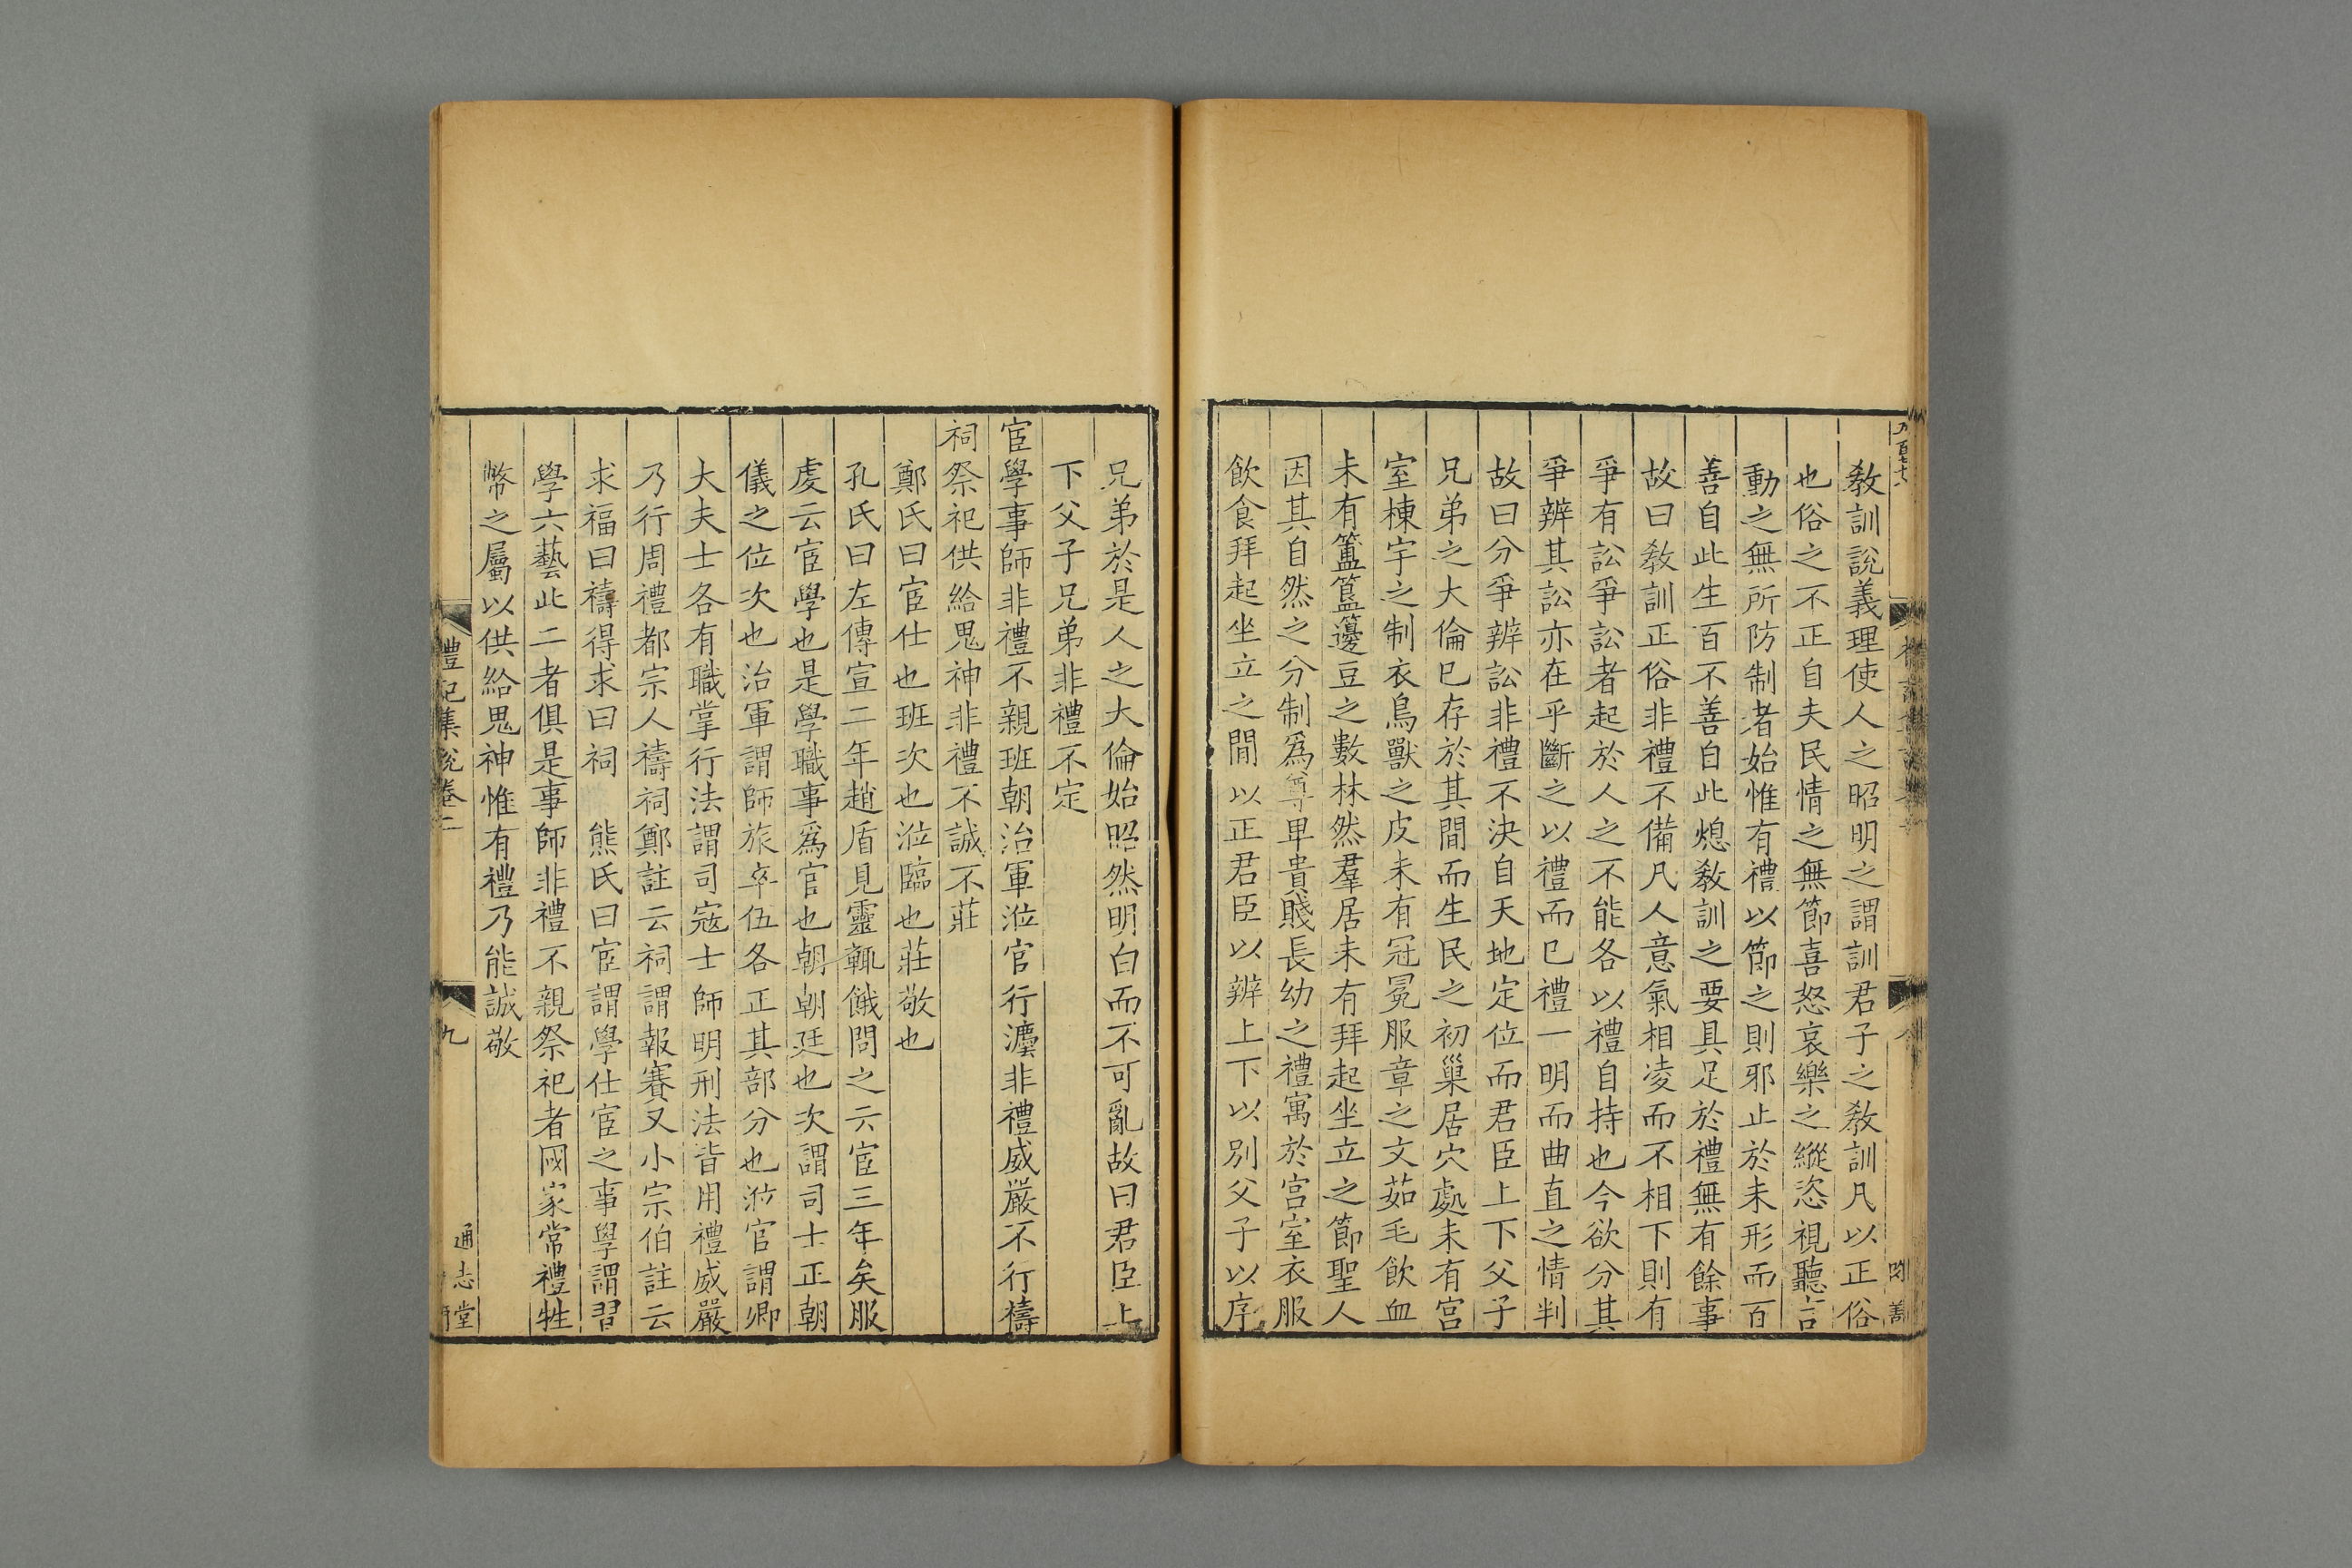 敎訓說義理使人之昭明之謂訓君子之敎訓凡以正俗
也俗之不正自夫民情之無節喜怒哀樂之縱恣視聽言
動之無所防制者始惟有禮以節之則邪止於未形而百
善自此生百不善自此熄敎訓之要具足於禮無有餘事
故曰敎訓正俗非禮不備凡人意氣相凌而不相下則有
爭有訟爭訟者起於人之不能各以禮自持也今欲分其
爭辨其訟亦在乎斷之以禮而已禮一明而曲直之情判
故曰分爭辨訟非禮不決自天地定位而君臣上下父子
兄弟之大倫已存於其間而生民之初巢居穴處未有宫
室棟宇之制衣鳥獸之皮未有冠冕服章之文茹毛飲血
未有簠簋籩豆之數林然羣居未有拜起坐立之節聖人
因其自然之分制爲尊卑貴賤長幼之禮寓於宫室衣服
飲食拜起坐立之間以正君臣以辨上下以別父子以序
兄弟於是人之大倫始昭然明白而不可亂故曰君臣上
下父子兄弟非禮不定
宦學事師非禮不親班朝治軍涖官行灋非禮威嚴不行禱
祠祭祀供給鬼神非禮不誠不莊
鄭氏曰宦仕也班次也涖臨也莊敬也
孔氏曰左傳宣二年趙盾見靈輒餓問之云宦三年矣服
虔云宦學也是學職事爲官也朝朝廷也次謂司士正朝
儀之位次也治軍謂師旅卒伍各正其部分也涖官謂卿
大夫士各有職掌行法謂司寇士師明刑法皆用禮威嚴
乃行周禮都宗人禱祠鄭註云祠謂報賽又小宗伯註云
求福曰禱得求曰祠　熊氏曰宦謂學仕宦之事學謂習
學六藝此二者俱是事師非禮不親祭祀者國家常禮牲
幣之屬以供給鬼神惟有禮乃能誠敬
禮記集說卷二
九
通志堂